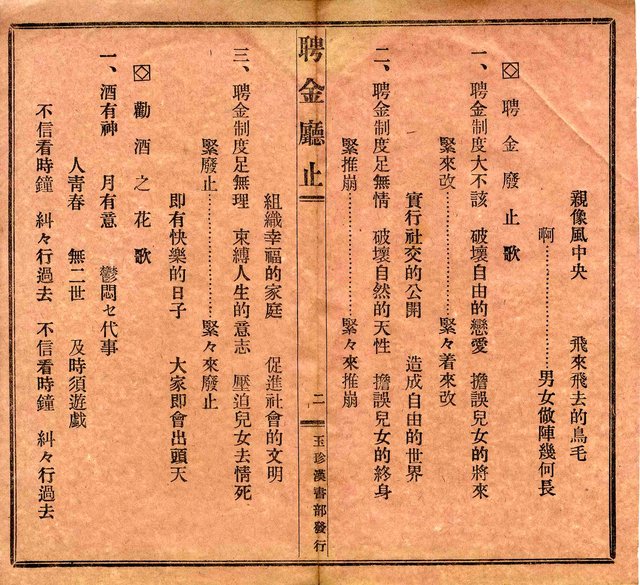 親像風中央　飛來飛去的鳥毛
啊……………………男女做陣幾何長
◇聘金廢止歌
一、聘金制度大不該　破壞自由的戀愛　擔誤兒女的將來
緊來改……………………緊々着來改
實行社交的公開　造成自由的世界
二、聘金制度足無情　破壞自然的天性　擔誤兒女的終身
緊推崩……………………緊々來推崩
聘金廳止
二
玉珍漢書部發行
組織幸福的家庭　促進社會的文明
三、聘金制度足無理　束縛人生的意志　壓迫兒女去情死
緊廢止……………………緊々來廢止
即有快樂的日子　大家即會出頭天
◇勸酒之花歌
一、酒有神　月有意　鬱悶セ代事
人靑春　無二世　及時須遊戲
不信看時鐘　糾々行過去　不信看時鐘　糾々行過去